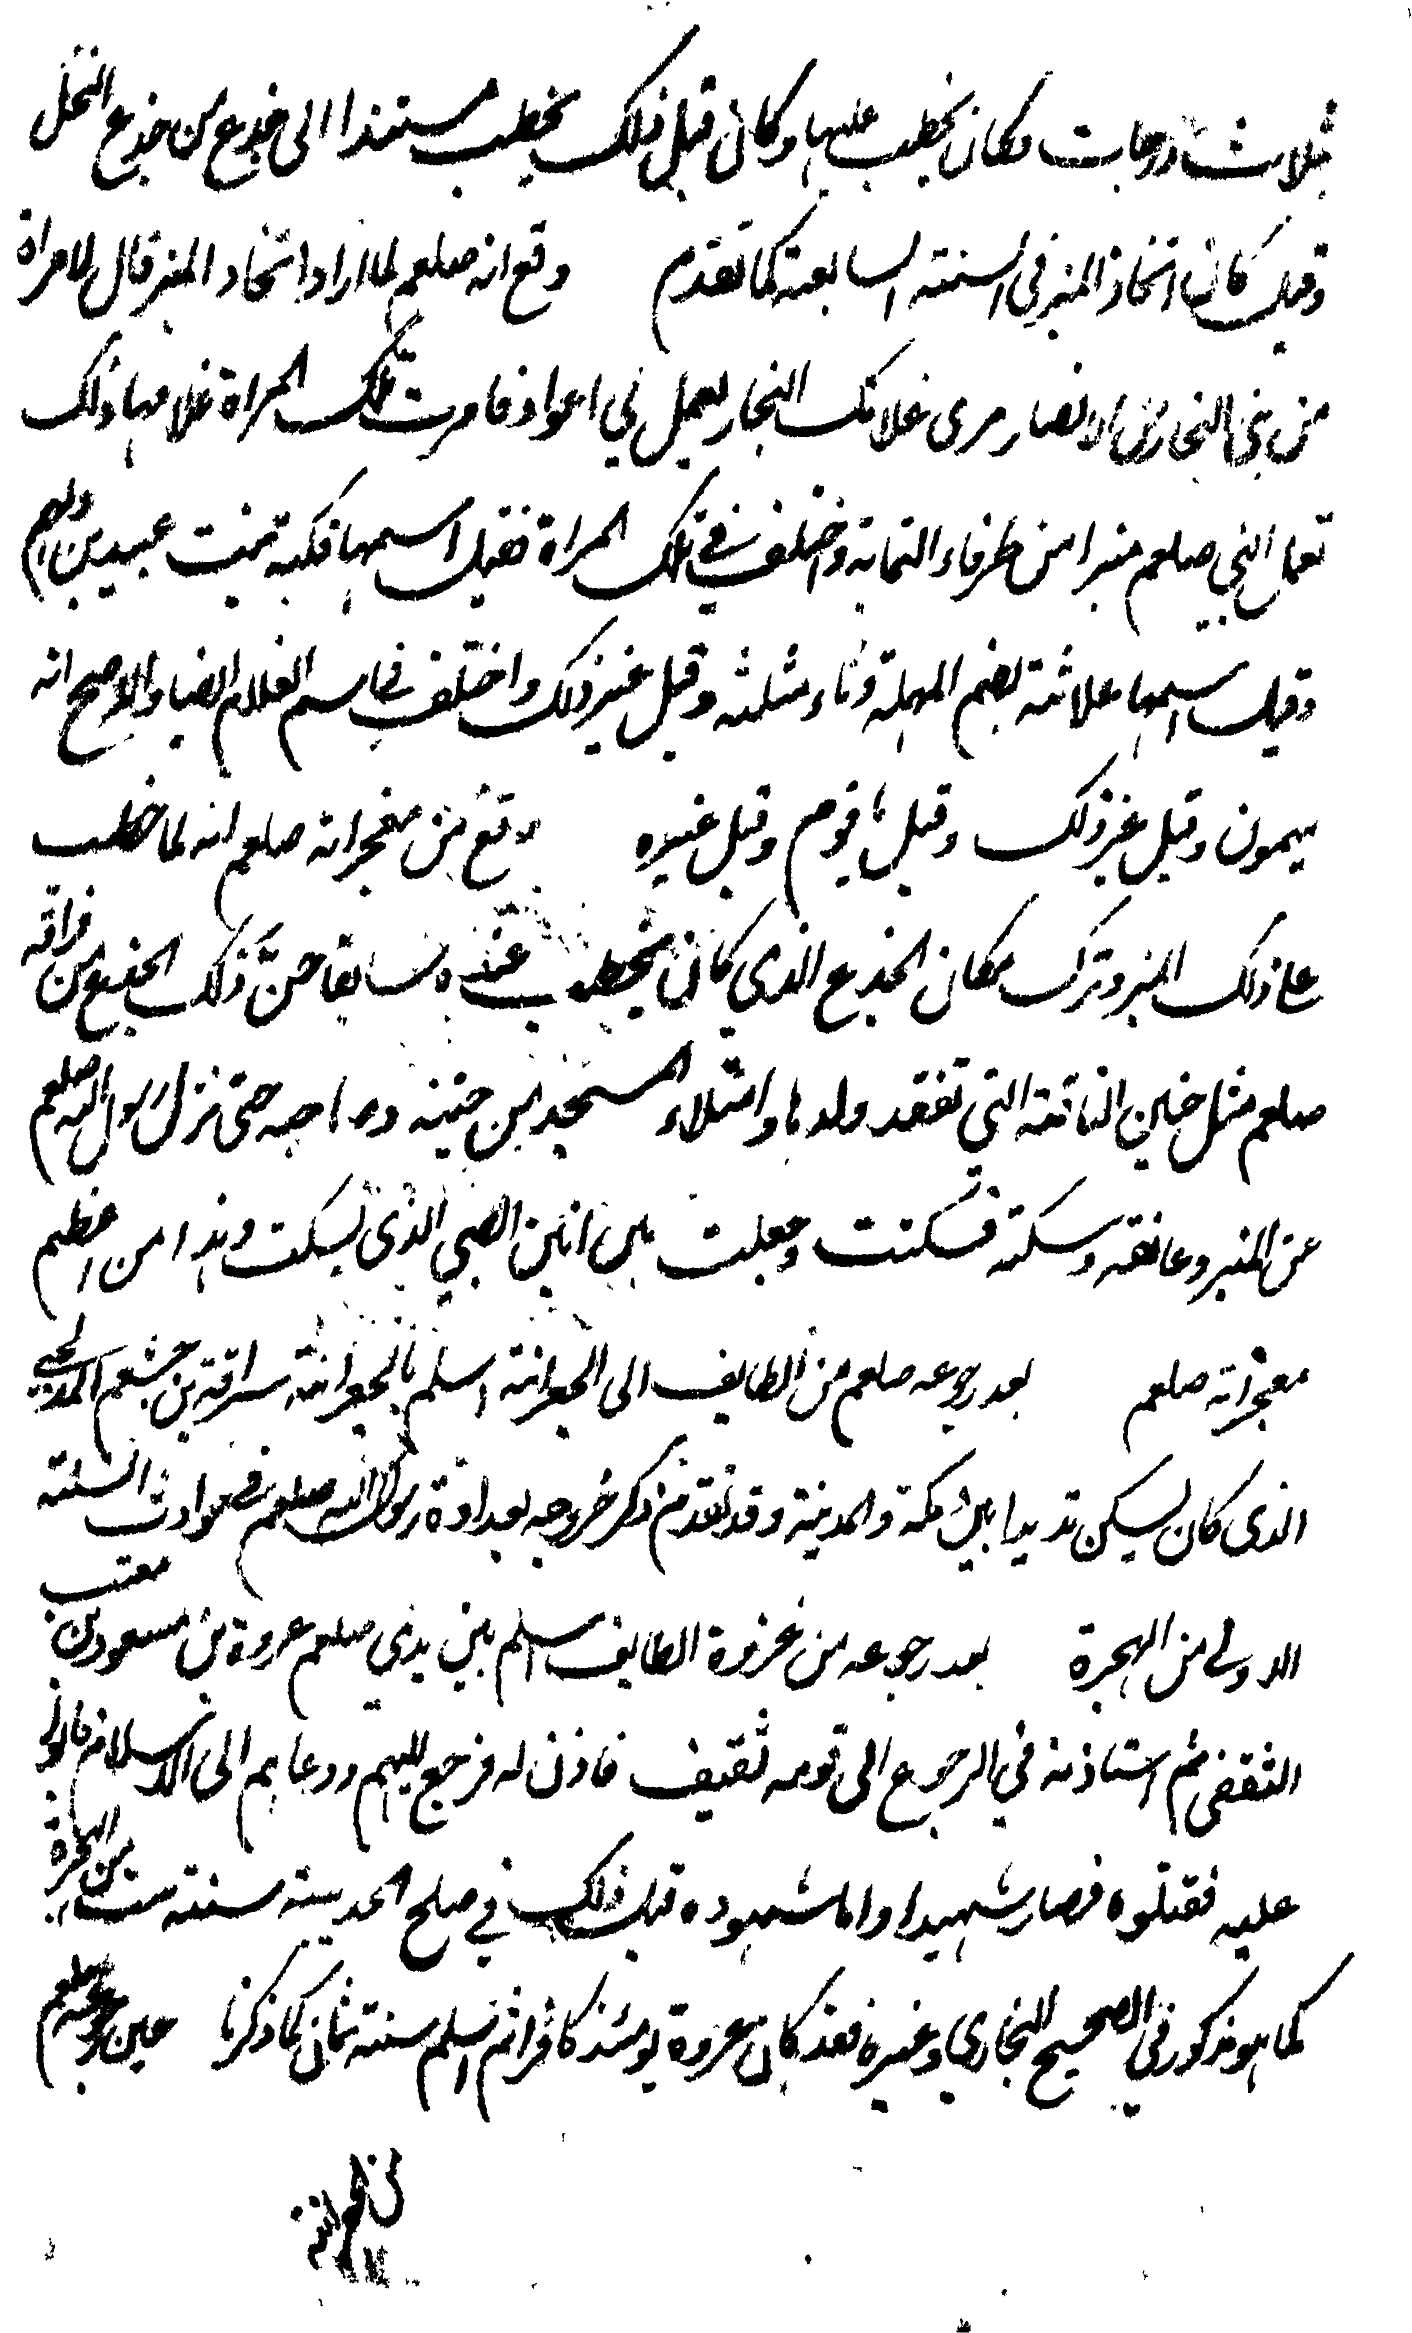 بثلاث درجات وكان يخطب عليها وكان قبل ذلك يخطب مستندا الى جذع من جذوع النخل
وقيل كان اتخاذ المنبر في السنة السابعة كما تقدم وقع انه صلعم لما اراد اتخاذ المنبر قال لامراة
من بني النجار من الانصار مرى غلامك النجار يعمل لي اعواد فامرت تلك المراة غلامها ذلك
فعمل النبي صلعم منبرا من طرفاء الغابة واختلف في تلك المراة فقيل اسمها فكيهة بنت عبيد بن دليم
وقيل اسمها علاثة بضم المهملة وثاء مثلثة وقيل غير ذلك واختلف في اسم الغلام ايضا والاصح انه
ميمون وقيل غير ذلك وقيل باقوم وقيل غيره وقع من معجزاته صلعم انه لما خطب
على ذلك المنبر وترك مكان الجذع الذي كان يخطب عنده سابقا حنّ ذلك الجذع من فراقه
صلعم مثل حنين الناقة التي تفقد ولدها وامتلاء المسجد من حنينه حتى نزل رسول الله صلعم
عن المنبر وعانقه وسكته فسكنت وجعلت يئن انين الصبي الذي يسكت وهذا من اعظم
معجزاته صلعم بعد رجوعه صلعم من الطايف الى الجعرانة اسلم بالجعرانة سراقة بن جشعم المدلجي
الذي كان يسكن قديدا بين مكة والمدينة وقد تقدم ذكر خروجه رسول الله صلعم في حوادث السنة
الاولى من الهجرة بعد رجوعه من غزوة الطايف اسلم بين يدي صلعم عروة بن مسعود بن معتب
الثقفي ثم استاذنه في الرجوع الى قومه ثقيف فاذن له فرجع اليهم ودعاهم الى الاسلام فابوا
عليه فقتلوه فصار شهيدا واما شهوده قبل ذلك في صلح الحديبية سنة ست من الهجرة
كما هو مذكور في الصحيح للبخاري وغيره فقد كان عروة يومئذ كافرا ثم اسلم سنة ثمان كما ذكرنا حين رجوعه صلعم